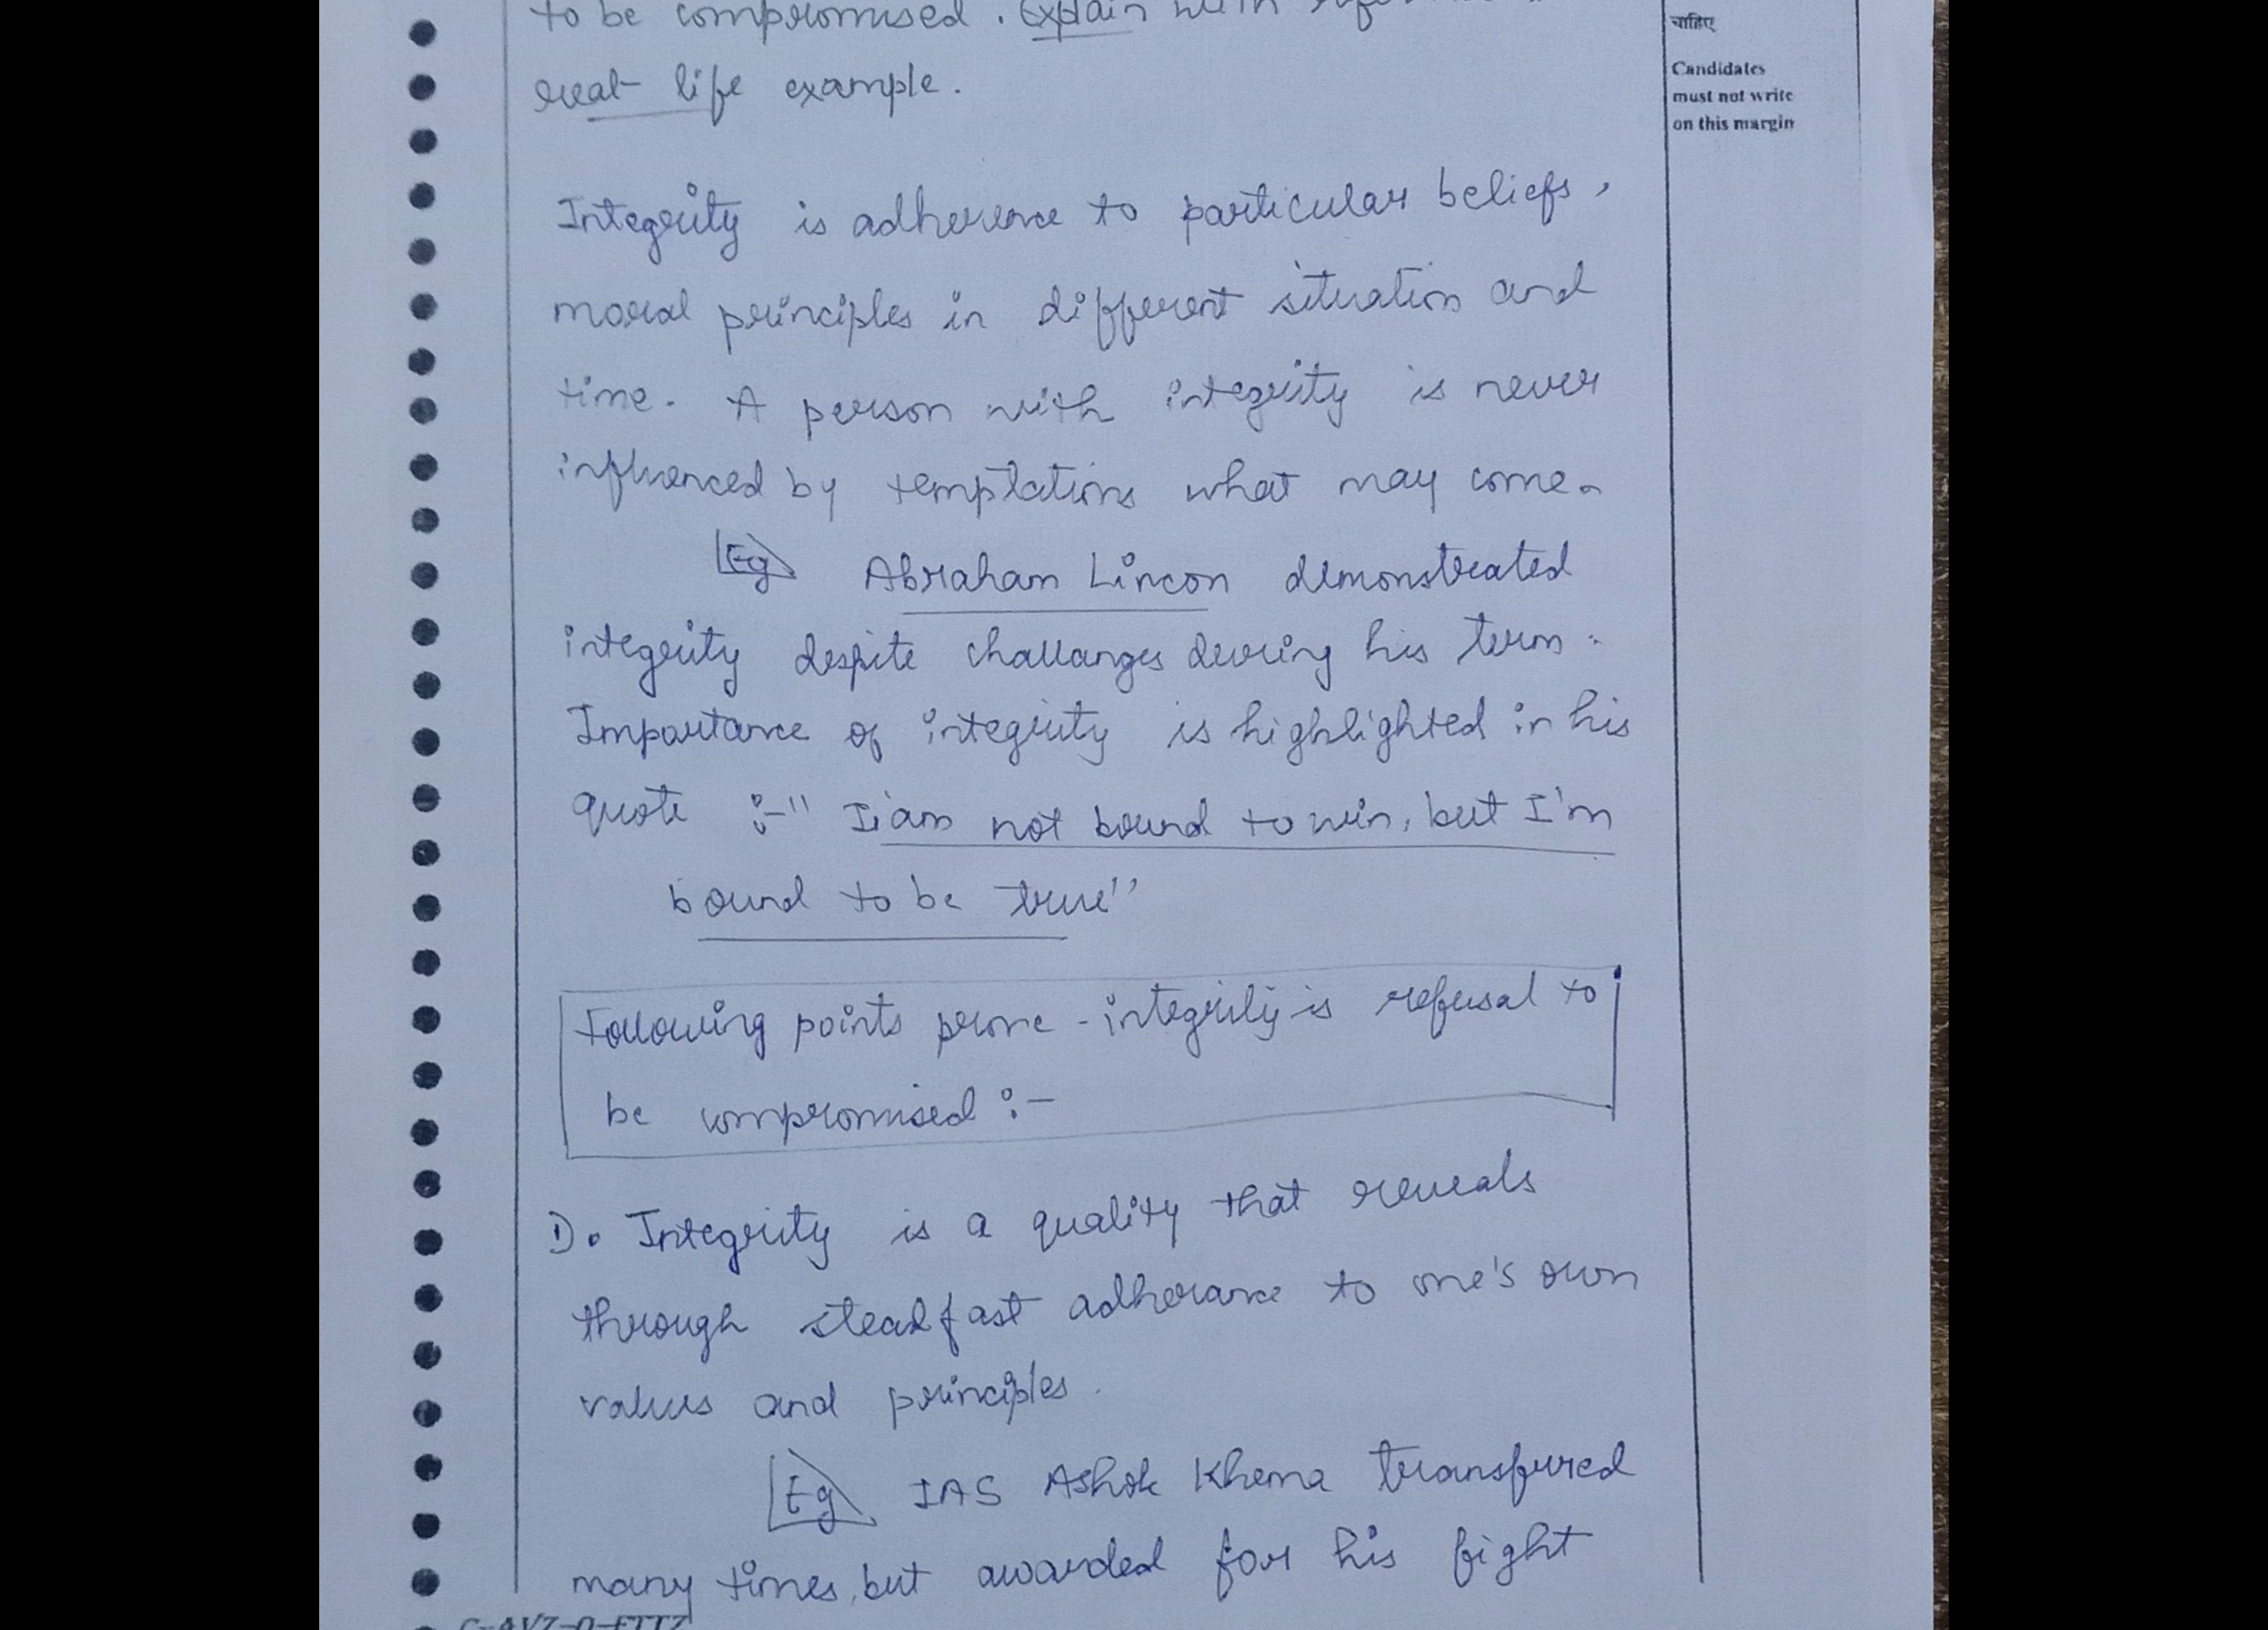 to be compromised. Explain with
real life example.
चाहिए
Candidates
must not write
on this margin
Integrity is adherence to particular beliefs,
moral principles in different situation and
time. A person with integrity is never
influenced by temptations what may come.
Eg Abraham Lincon demonstrated
integrity despite challanges during his term.
Importance of integrity is highlighted in his
quote :- " I am not bound to win, but I'm
bound to be true"
Following points prove - integrity is refusal to
be compromised :-
1). Integrity is a quality that reveals
through steadfast adherance to one's own
values and principles.
Eg IAS Ashok Khema transfured
many times, but awarded for his fight